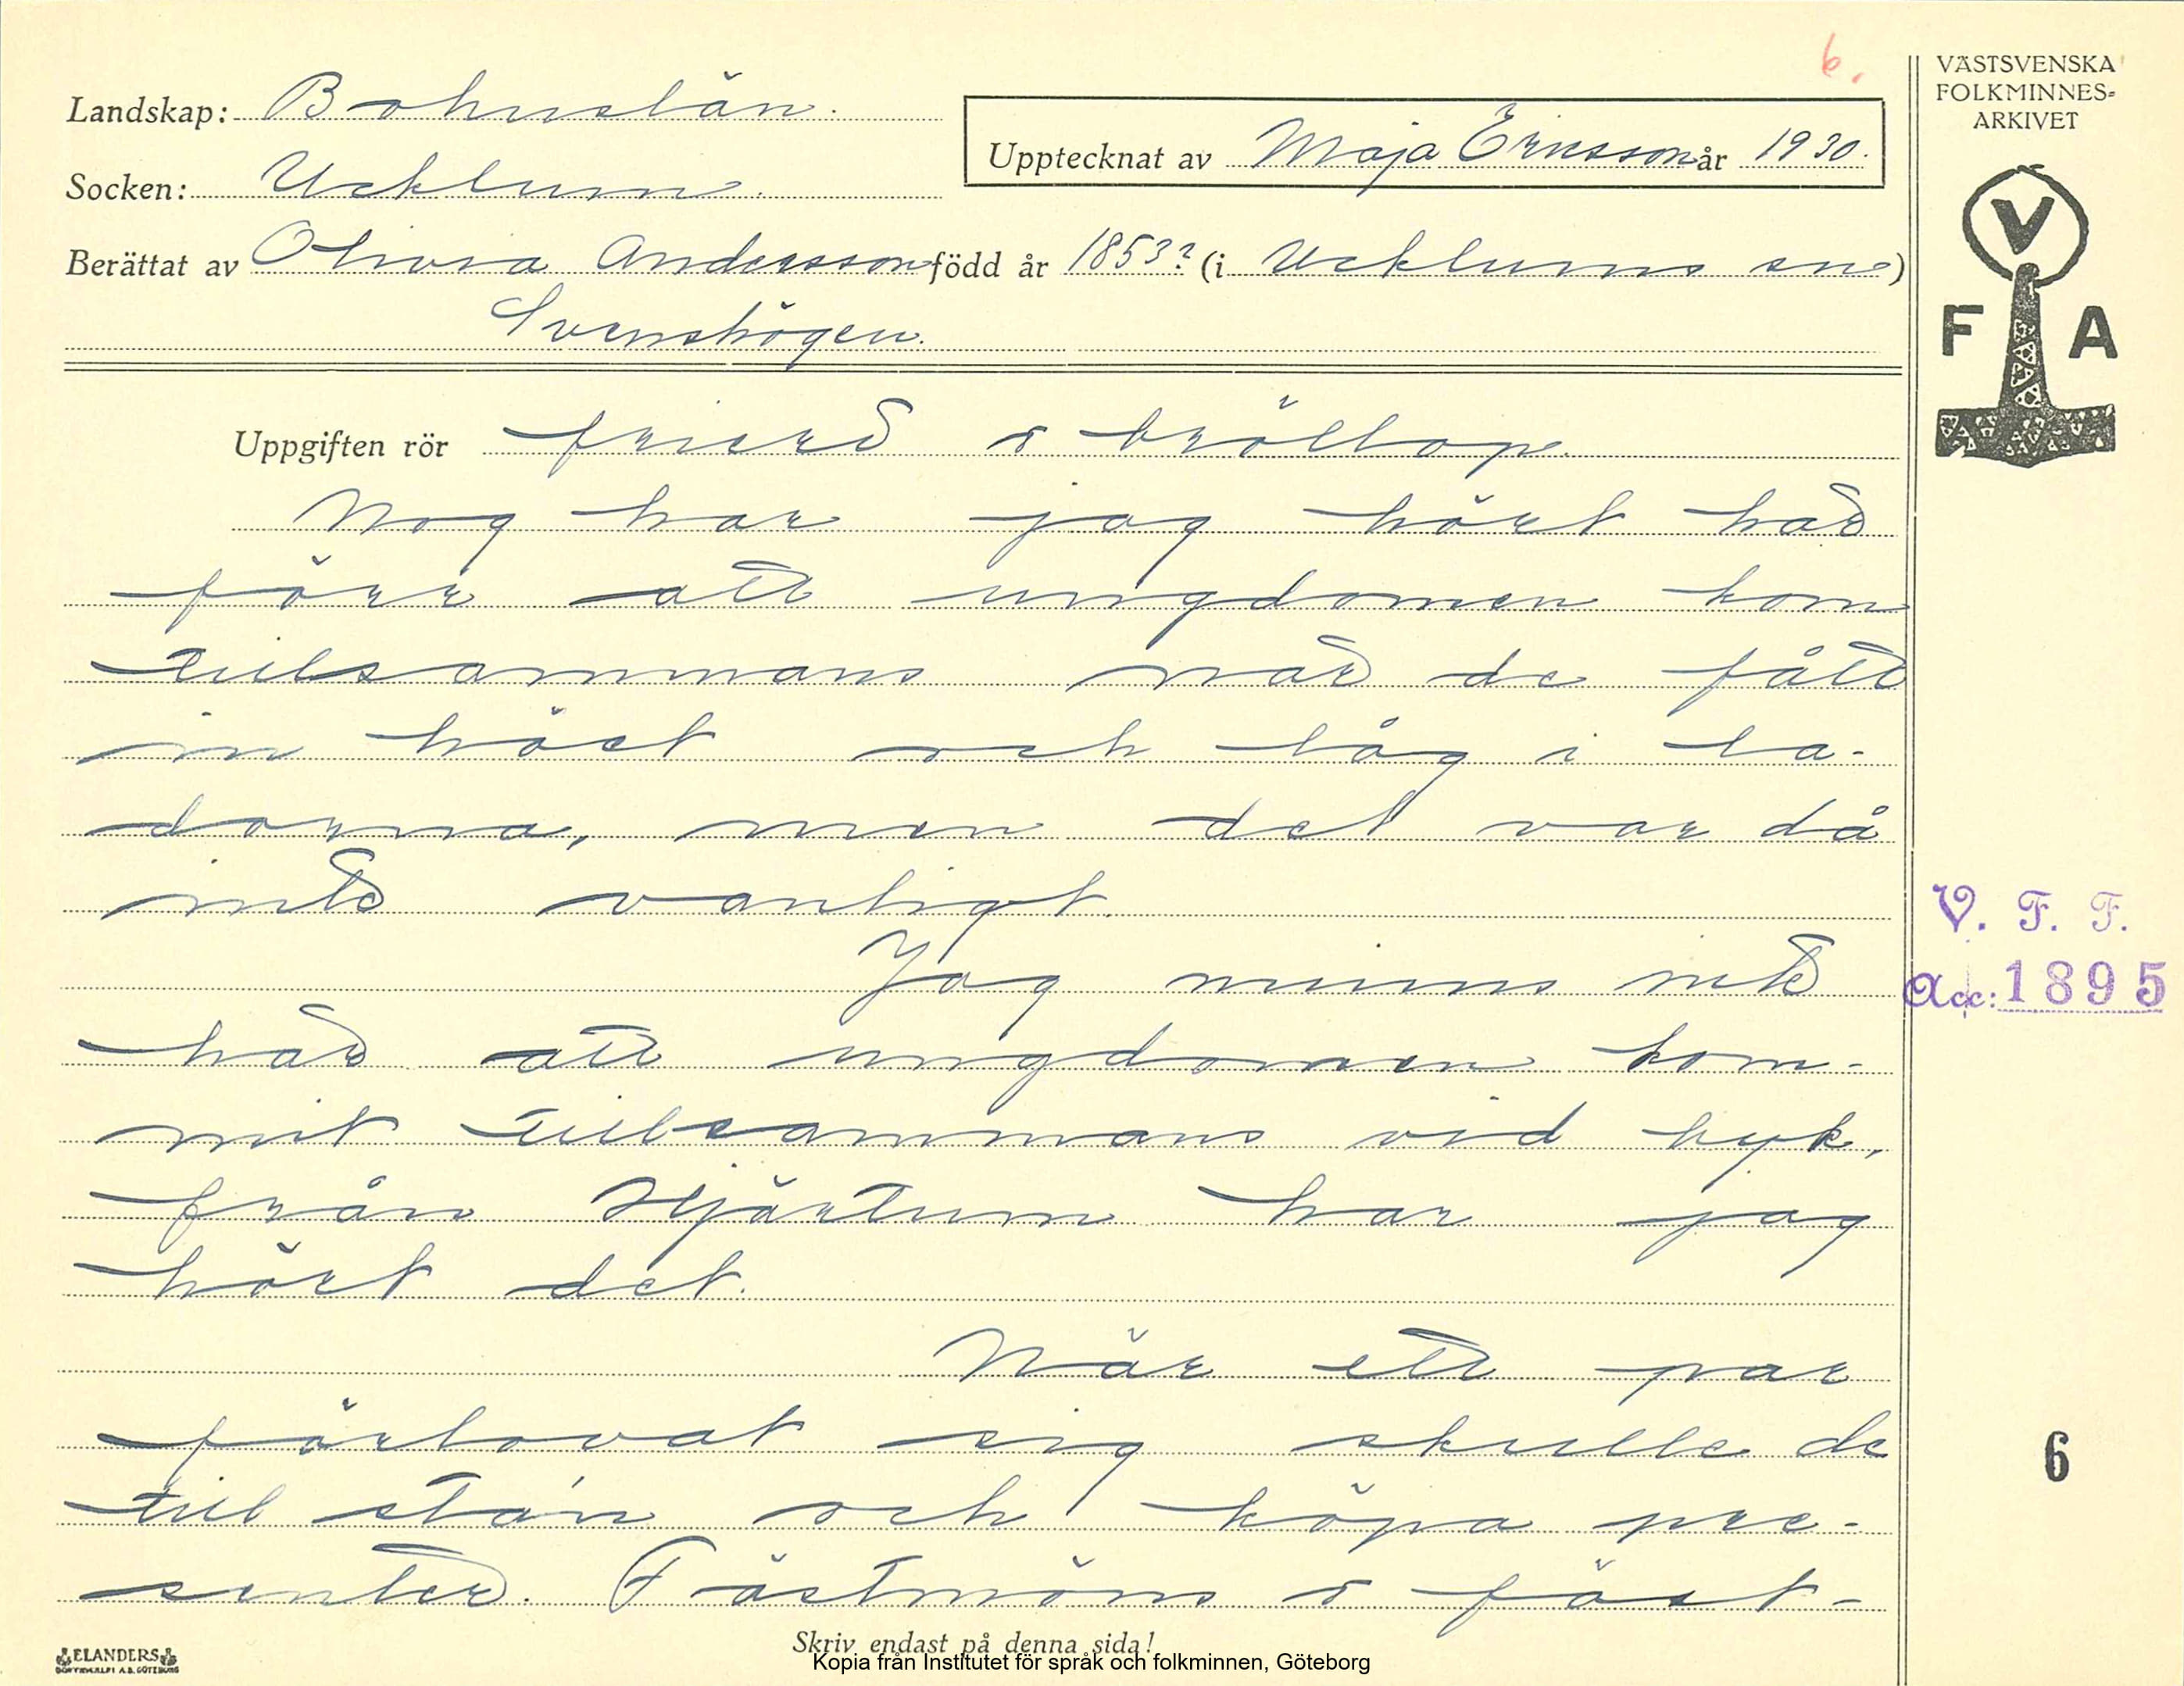 6.
Landskap: Bohuslän.
Upptecknat av Maja Ericsson år 1930.
Socken: Ucklum.
Berättat av Olivia Andersson född år 1853? (i Ucklums sn)
Svenshögen.
VÄSTSVENSKA
FOLKMINNES-
ARKIVET
V
F A
Uppgiften rör frieri o bröllop.
Nog har jag hört bad
förr att ungdomen kom
tillsammans när de fått
in höet och låg i la-
dorna, men det var då
inte vanligt.
Jag minns inte
att ungdomen kom-
mit tillsammans vid byk,
från Hjärtum har jag
hört det.
När ett par
förlovat sig skulle de
till sta'n och köpa pre-
senter. Fästmöns o fäst-
V. F. F.
Acc: 1895
6
ELANDERS
Skriv endast på denna sida!
Kopia från Institutet för språk och folkminnen, Göteborg